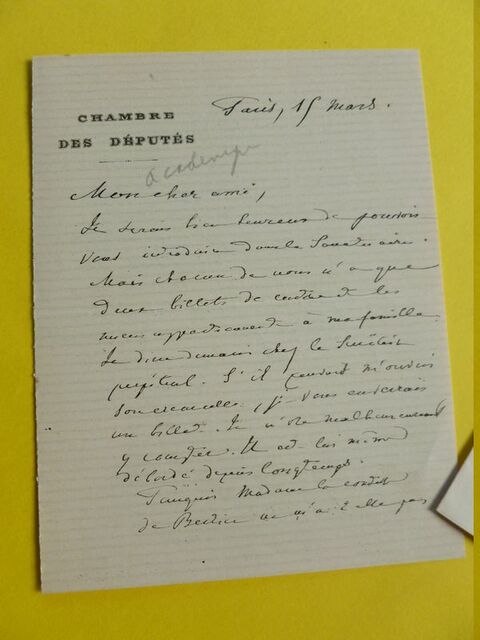 CHAMBRE
DES DÉPUTÉS
Paris, 15 mars.
Mon cher ami,
Je serais bien heureux de pouvoir
vous introduire dans le Sanctuaire.
Mais chacun de nous n'a que
deux billets de centre et les
miens appartiennent à ma famille.
Je dîne demain chez le Secrétaire
perpétuel. S'il pouvait m'ouvrir
son escarcelle, je vous enverrais
un billet. Je n'ose malheureusement
y compter. Il est lui même
débordé depuis longtemps.
Madame la comtesse
de n'a-t-elle pas